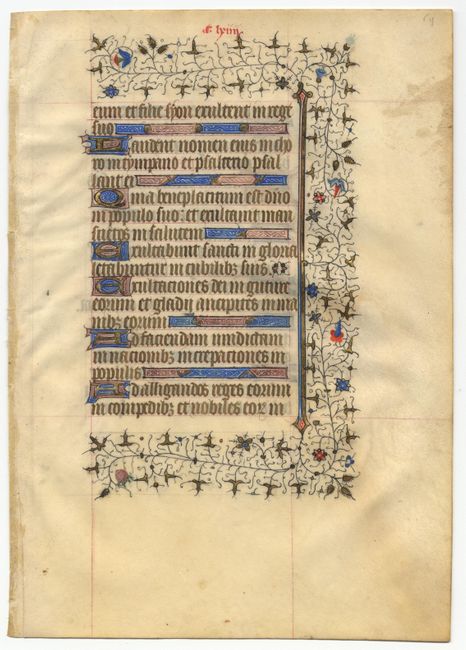 eum et filie syon exultent in rege
suo
Laudent nomen eius in cho
ro in tympano et psalterio psal
lant ei
Quia beneplacitum est dno
in populo suo: et exultauit man
suetos in salutem
Exultabunt sancti in gloria
letabuntur in cubilibz suis
Exultaciones dei in gutture
eorum et gladij ancipites in ma
nibz eorum
Ad faciendam uindictam
in nacionibz increpaciones in
populis
Ad alligandos reges eorum
in compedibz et nobiles eor in